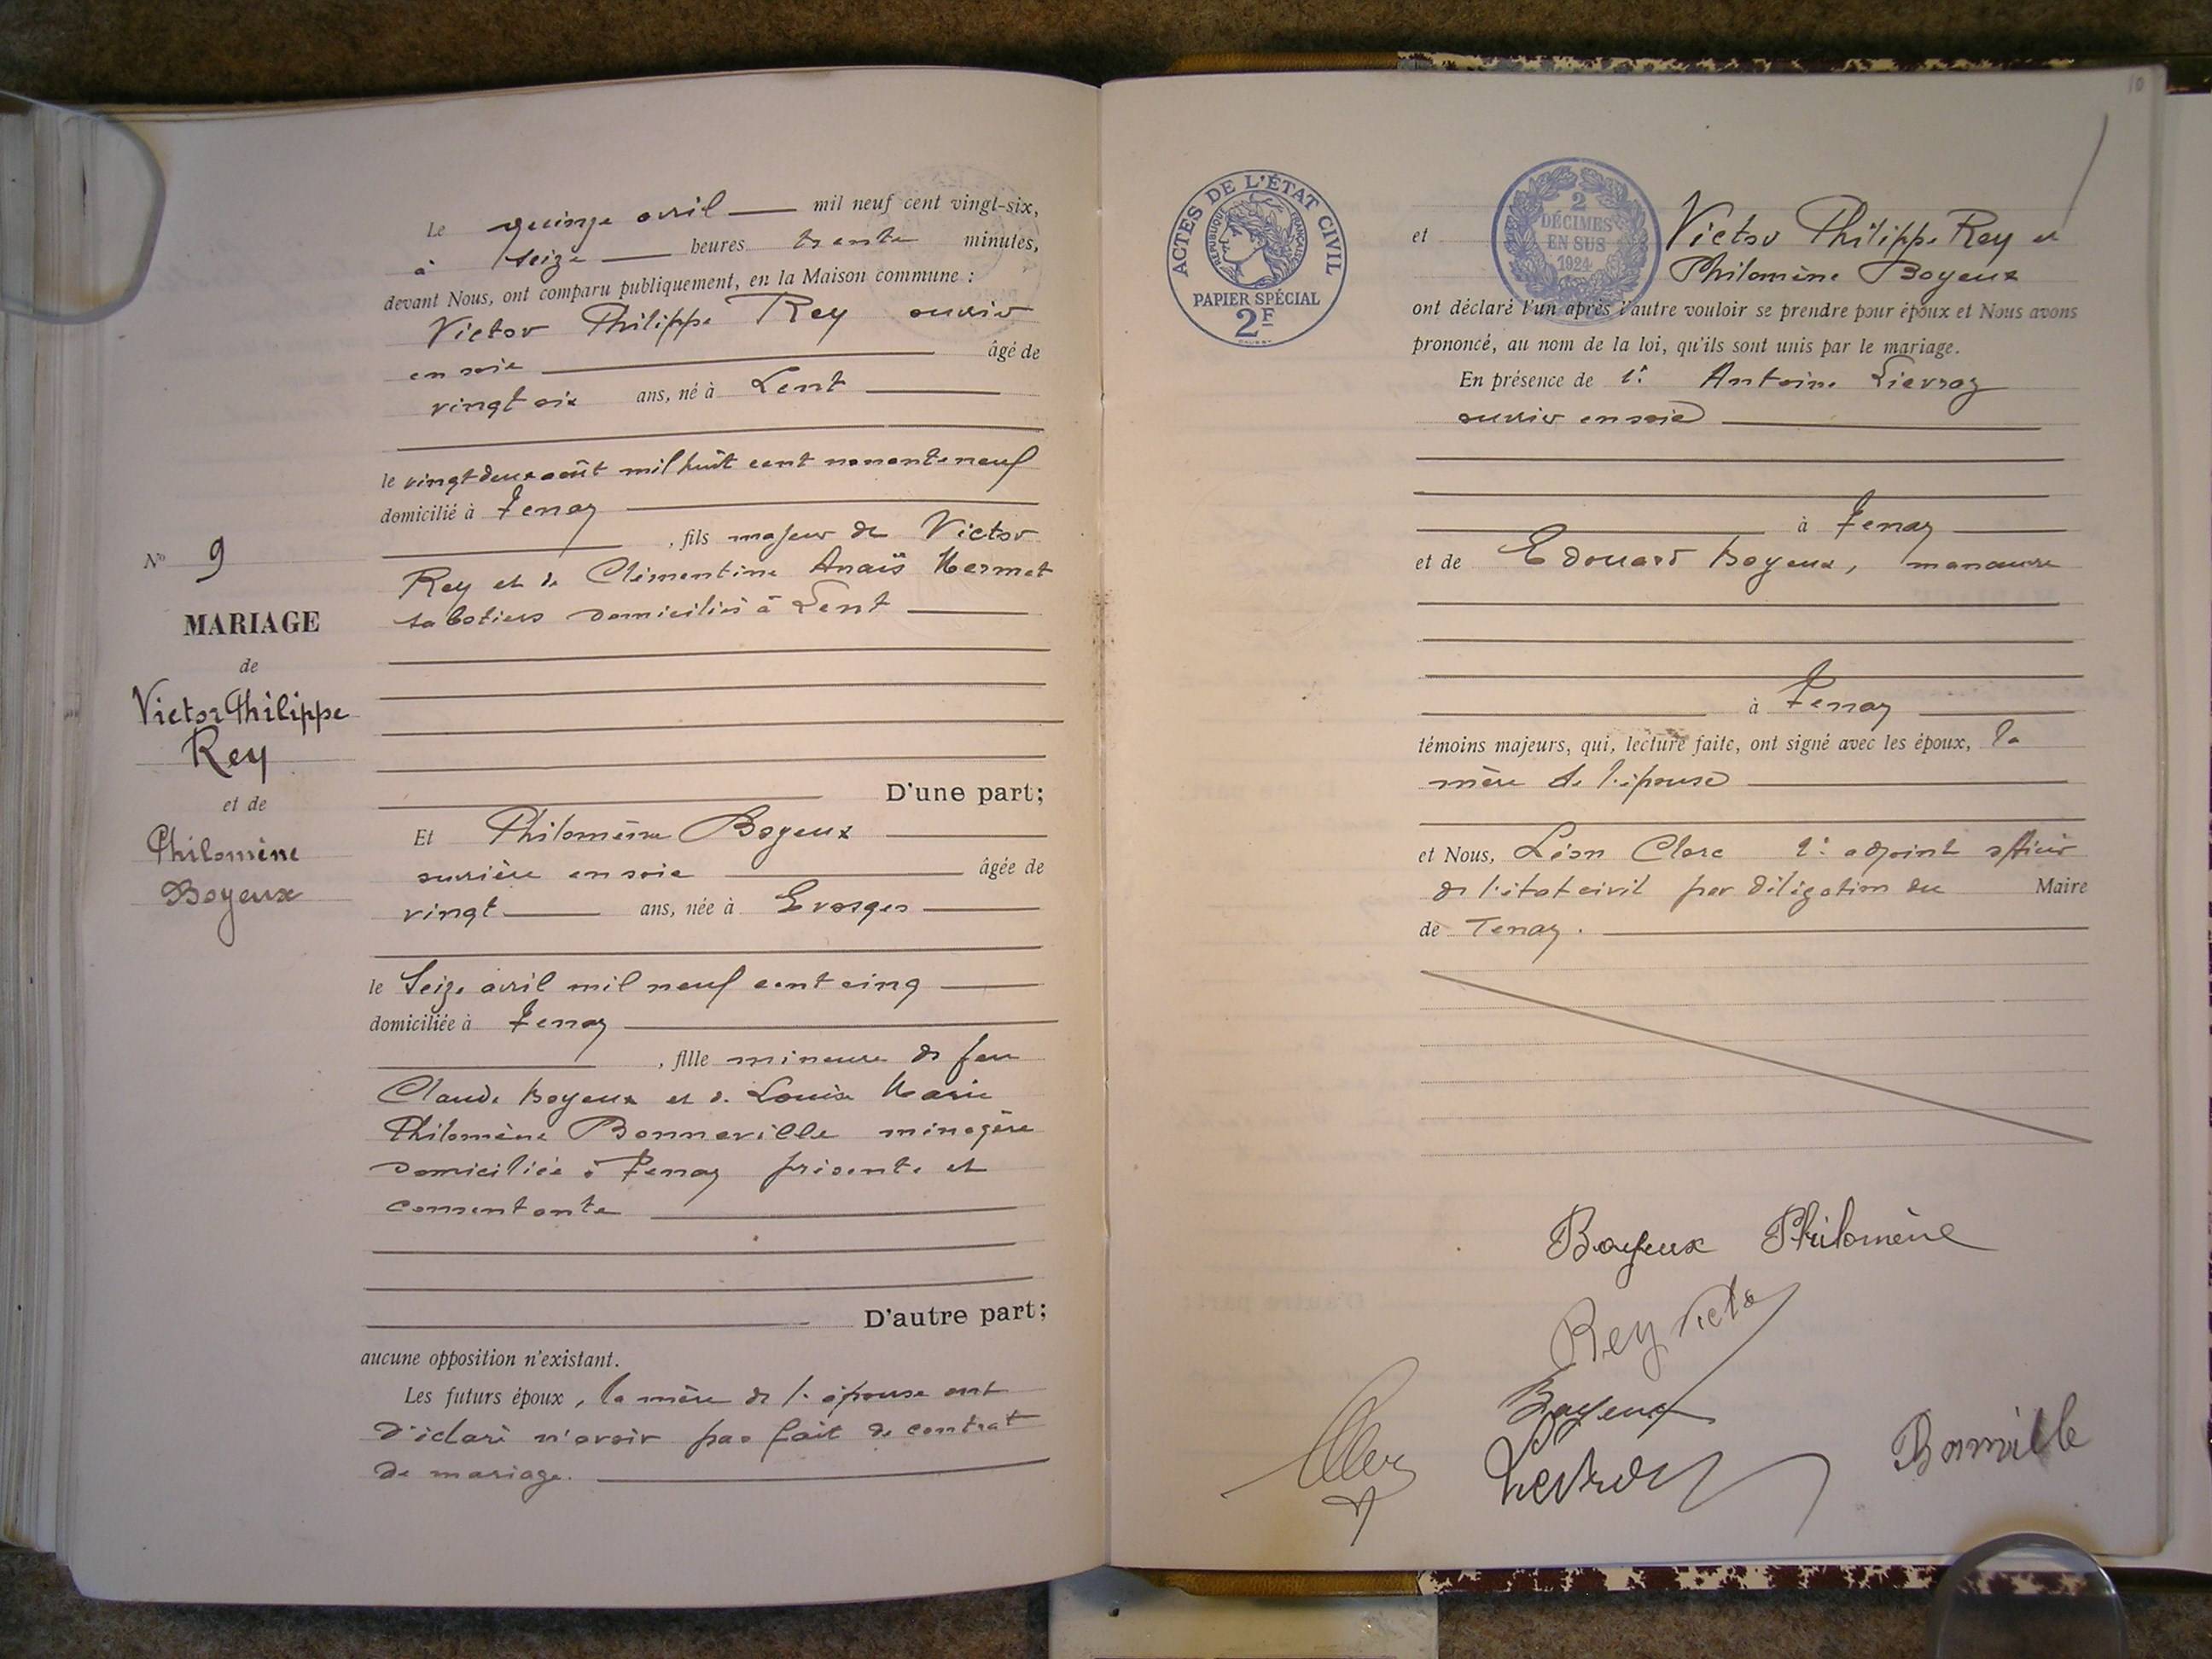 Le quinze avril mil neuf cent vingt-six,
à seize heures trente minutes,
devant Nous, ont comparu publiquement, en la Maison commune :
Victor Philippe Rey ouvrier
en soie âgé de
vingt six ans, né à Lent
le vingt deux août mil huit cent nonante neuf
domicilié à Tenay
, fils majeur de Victor
Rey et de Clémentine Anaïs Mermet
sabotiers domiciliés à Lent
D'une part;
Et Philomène Boyeux
ouvrière en soie âgée de
vingt ans, née à Evosges
le Seize avril mil neuf cent cinq
domiciliée à Tenay
, fille mineure de feu
Claude Boyeux et de Louise Marie
Philomène Bonneville ménagère
domiciliée à Tenay présente et
consentante
D'autre part;
aucune opposition n'existant.
Les futurs époux, la mère de l'épouse ont
déclaré n'avoir pas fait de contrat
de mariage.
N° 9
MARIAGE
de
Victor Philippe
Rey
et de
Philomène
Boyeux
10
ACTES DE L'ÉTAT CIVIL
RÉPUBLIQUE FRANÇAISE
PAPIER SPÉCIAL
2F
2
DÉCIMES
EN SUS
1924
et Victor Philippe Rey et
Philomène Boyeux
ont déclaré l'un après l'autre vouloir se prendre pour époux et Nous avons
prononcé, au nom de la loi, qu'ils sont unis par le mariage.
En présence de 1° Antoine Lievroz
ouvrier en soie
à Tenay
et de Edouard Boyeux, manœuvre
à Tenay
témoins majeurs, qui, lecture faite, ont signé avec les époux, la
mère de l'épouse
et Nous, Léon Clerc 1° adjoint officier
de l'état civil par déligation du Maire
de Tenay.
Boyeux Philomène
Rey Victor
Boyeux
Bonville